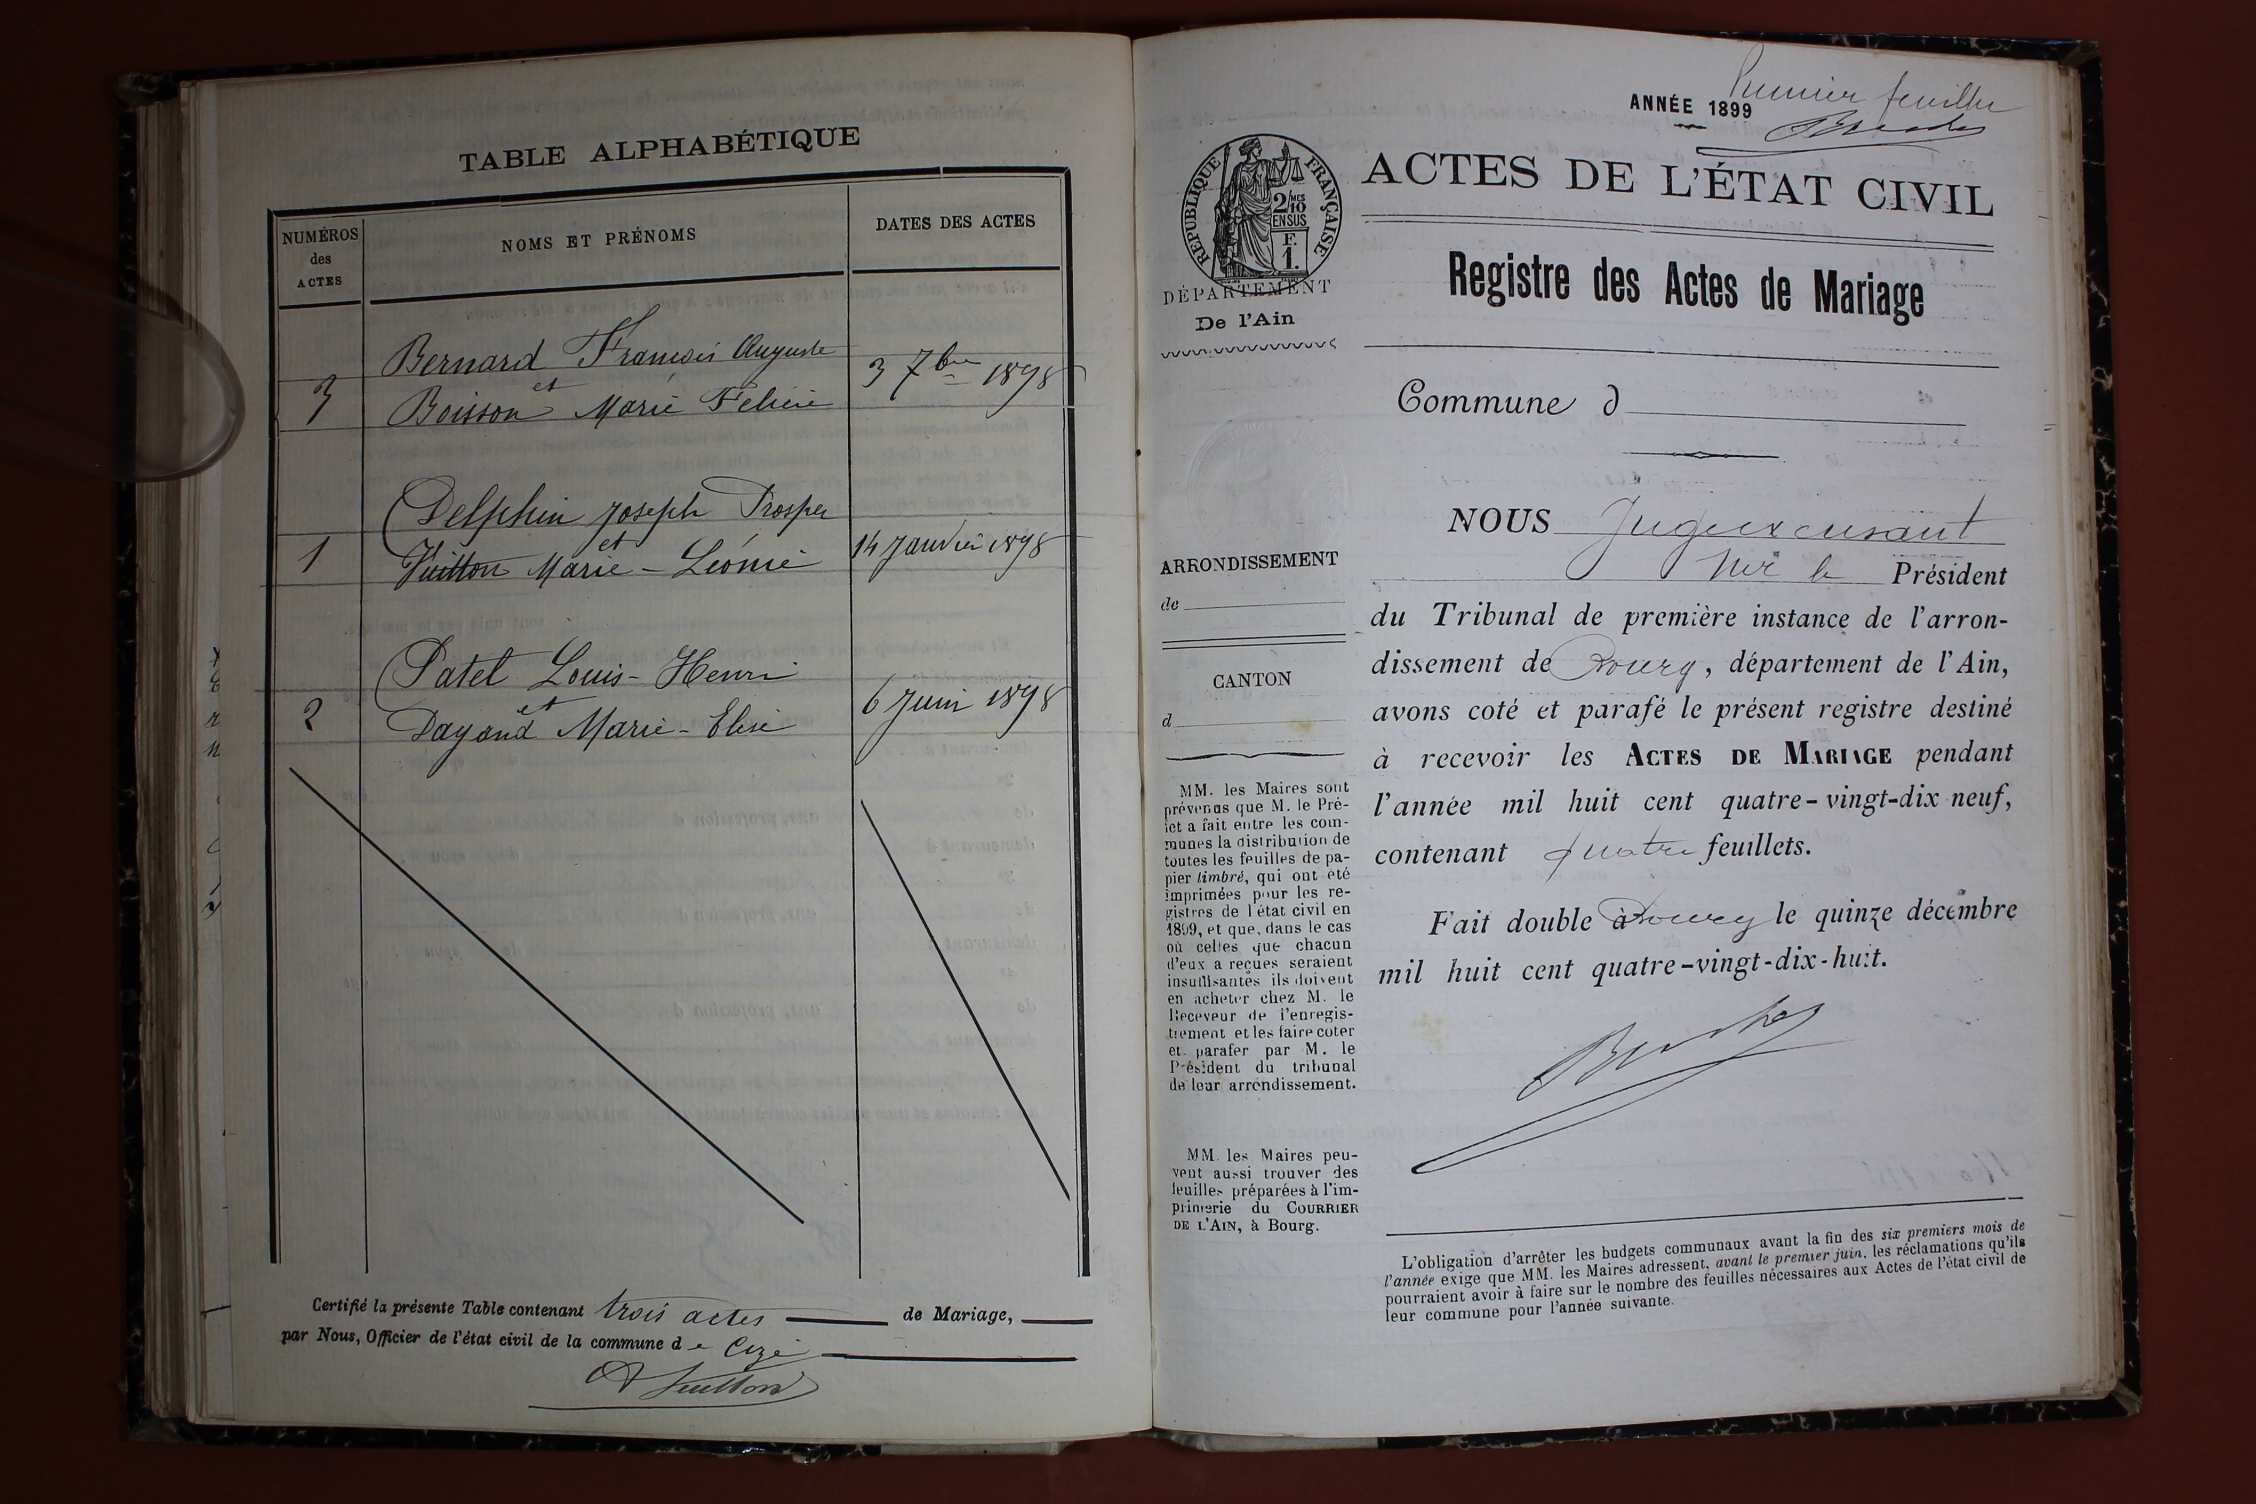 TABLE ALPHABÉTIQUE
NUMÉROS
des
ACTES
NOMS ET PRÉNOMS
DATES DES ACTES
Bernard François Auguste
et
3 Boisson Marie Felicie 3 7bre 1898
Delphin Joseph Prosper
et
1 Vuitton Marie - Léonie 14 Janvier 1898
Patel Louis - Henri
et
2 Dayand Marie - Elise 6 Juin 1898
Certifié la présente Table contenant trois actes de Mariage,
par Nous, Officier de l'état civil de la commune de Cize
Vuitton
Premier feuillet
ANNÉE 1899
RÉPUBLIQUE FRANÇAISE
2/10 MES
EN SUS
F.
1.
ACTES DE L'ÉTAT CIVIL
Registre des Actes de Mariage
DÉPARTEMENT
De l'Ain
Commune d
ARRONDISSEMENT
de
CANTON
d
MM. les Maires sont
prévenus que M. le Pré-
fet a fait entre les com-
munes la distribution de
toutes les feuilles de pa-
pier timbré, qui ont été
imprimées pour les re-
gistres de l'état civil en
1899, et que, dans le cas
où celles que chacun
d'eux a reçues seraient
insuffisantes ils doivent
en acheter chez M. le
Receveur de l'enregis-
trement et les faire coter
et parafer par M. le
Président du tribunal
de leur arrondissement.
MM. les Maires peu-
vent aussi trouver des
feuilles préparées à l'im-
primerie du COURRIER
DE L'AIN, à Bourg.
NOUS Juge excusant
Mr le Président
du Tribunal de première instance de l'arron-
dissement de Bourg, département de l'Ain,
avons coté et parafé le présent registre destiné
à recevoir les ACTES DE MARIAGE pendant
l'année mil huit cent quatre-vingt-dix neuf,
contenant quatre feuillets.
Fait double à Bourg le quinze décembre
mil huit cent quatre-vingt-dix-huit.
L'obligation d'arrêter les budgets communaux avant la fin des six premiers mois de
l'année exige que MM. les Maires adressent, avant le premier juin, les réclamations qu'ils
pourraient avoir à faire sur le nombre des feuilles nécessaires aux Actes de l'état civil de
leur commune pour l'année suivante.